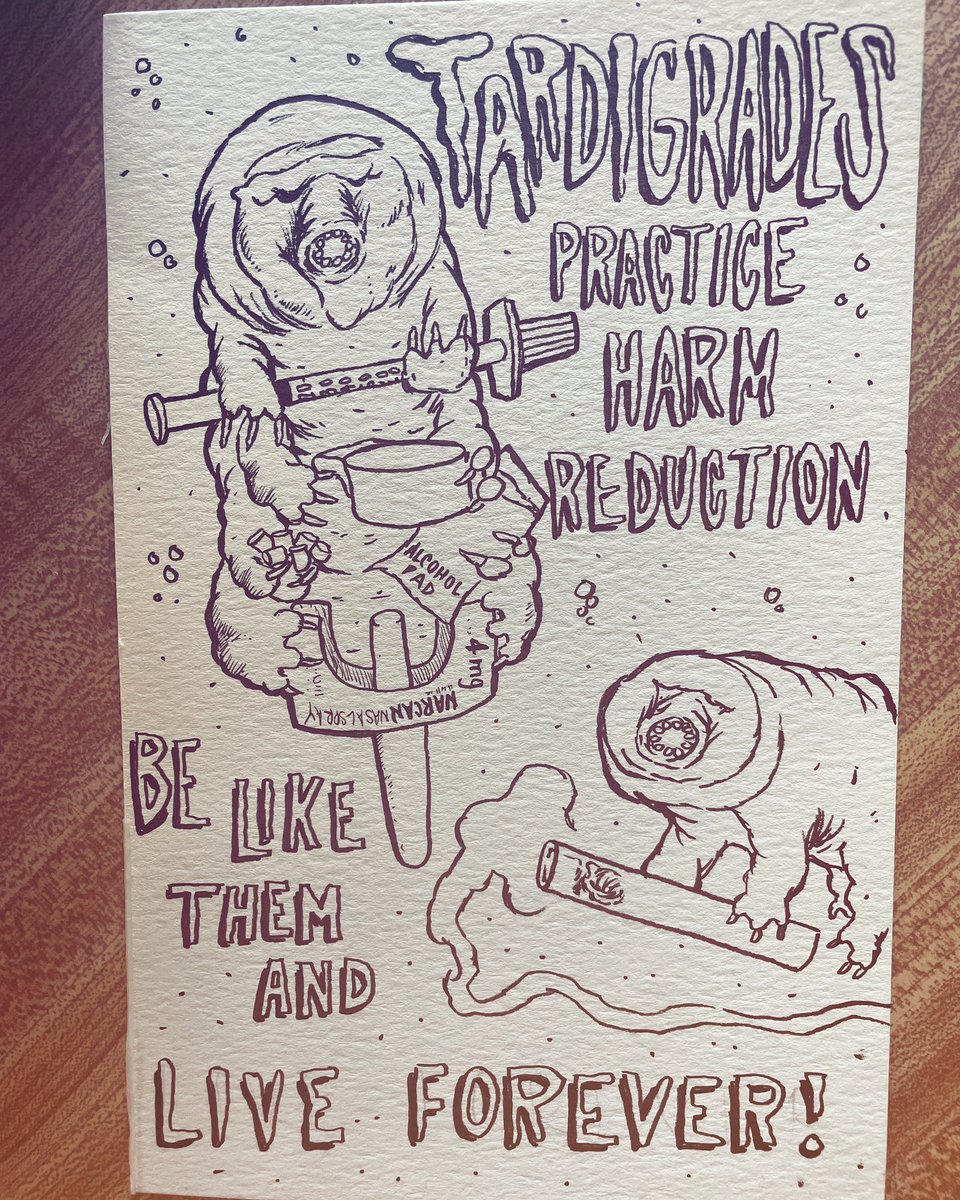 TARDIGRADES
PRACTICE
HARM
REDUCTION
ALCOHOL
PAD
4 mg
NARCAN NASAL SPRAY
BE
LIKE
THEM
AND
LIVE FOREVER!